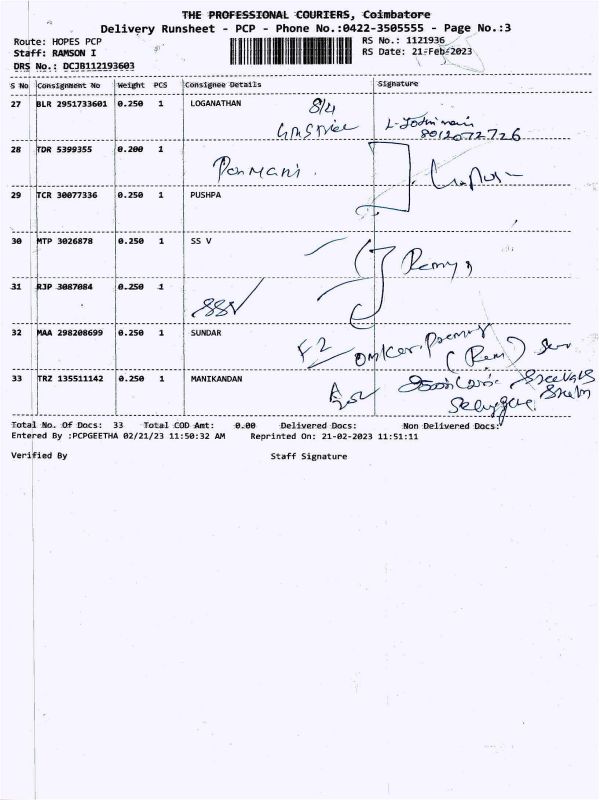 THE PROFESSIONAL COURIERS, Coimbatore
Delivery Runsheet - PCP - Phone No.:0422-3505555 - Page No.:3
Route: HOPES PCP
RS No.: 1121936
Staff: RAMSON I
RS Date: 21-Feb-2023
DRS No.: DCJB112193603
S No Consignment No Weight PCS Consignee Details Signature
27 BLR 2951733601 0.250 1 LOGANATHAN 8/4
8012072726
28 TDR 5399355 0.200 1
29 TCR 30077336 0.250 1 PUSHPA
30 MTP 3026878 0.250 1 SS V
Remya
31 RJP 3087084 0.250 1
SSV
32 MAA 298208699 0.250 1 SUNDAR
F2
33 TRZ 135511142 0.250 1 MANIKANDAN
Total No. Of Docs: 33 Total COD Amt: 0.00 Delivered Docs: Non Delivered Docs:
Entered By :PCPGEETHA 02/21/23 11:50:32 AM Reprinted On: 21-02-2023 11:51:11
Verified By Staff Signature